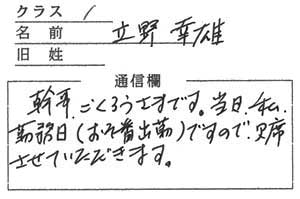 クラス 1
名前 立野 幸雄
旧姓
通信欄
幹事.ごくろうさまです。当日.私.
勤務日(おそ番出勤)ですので.欠席
させていただきます。